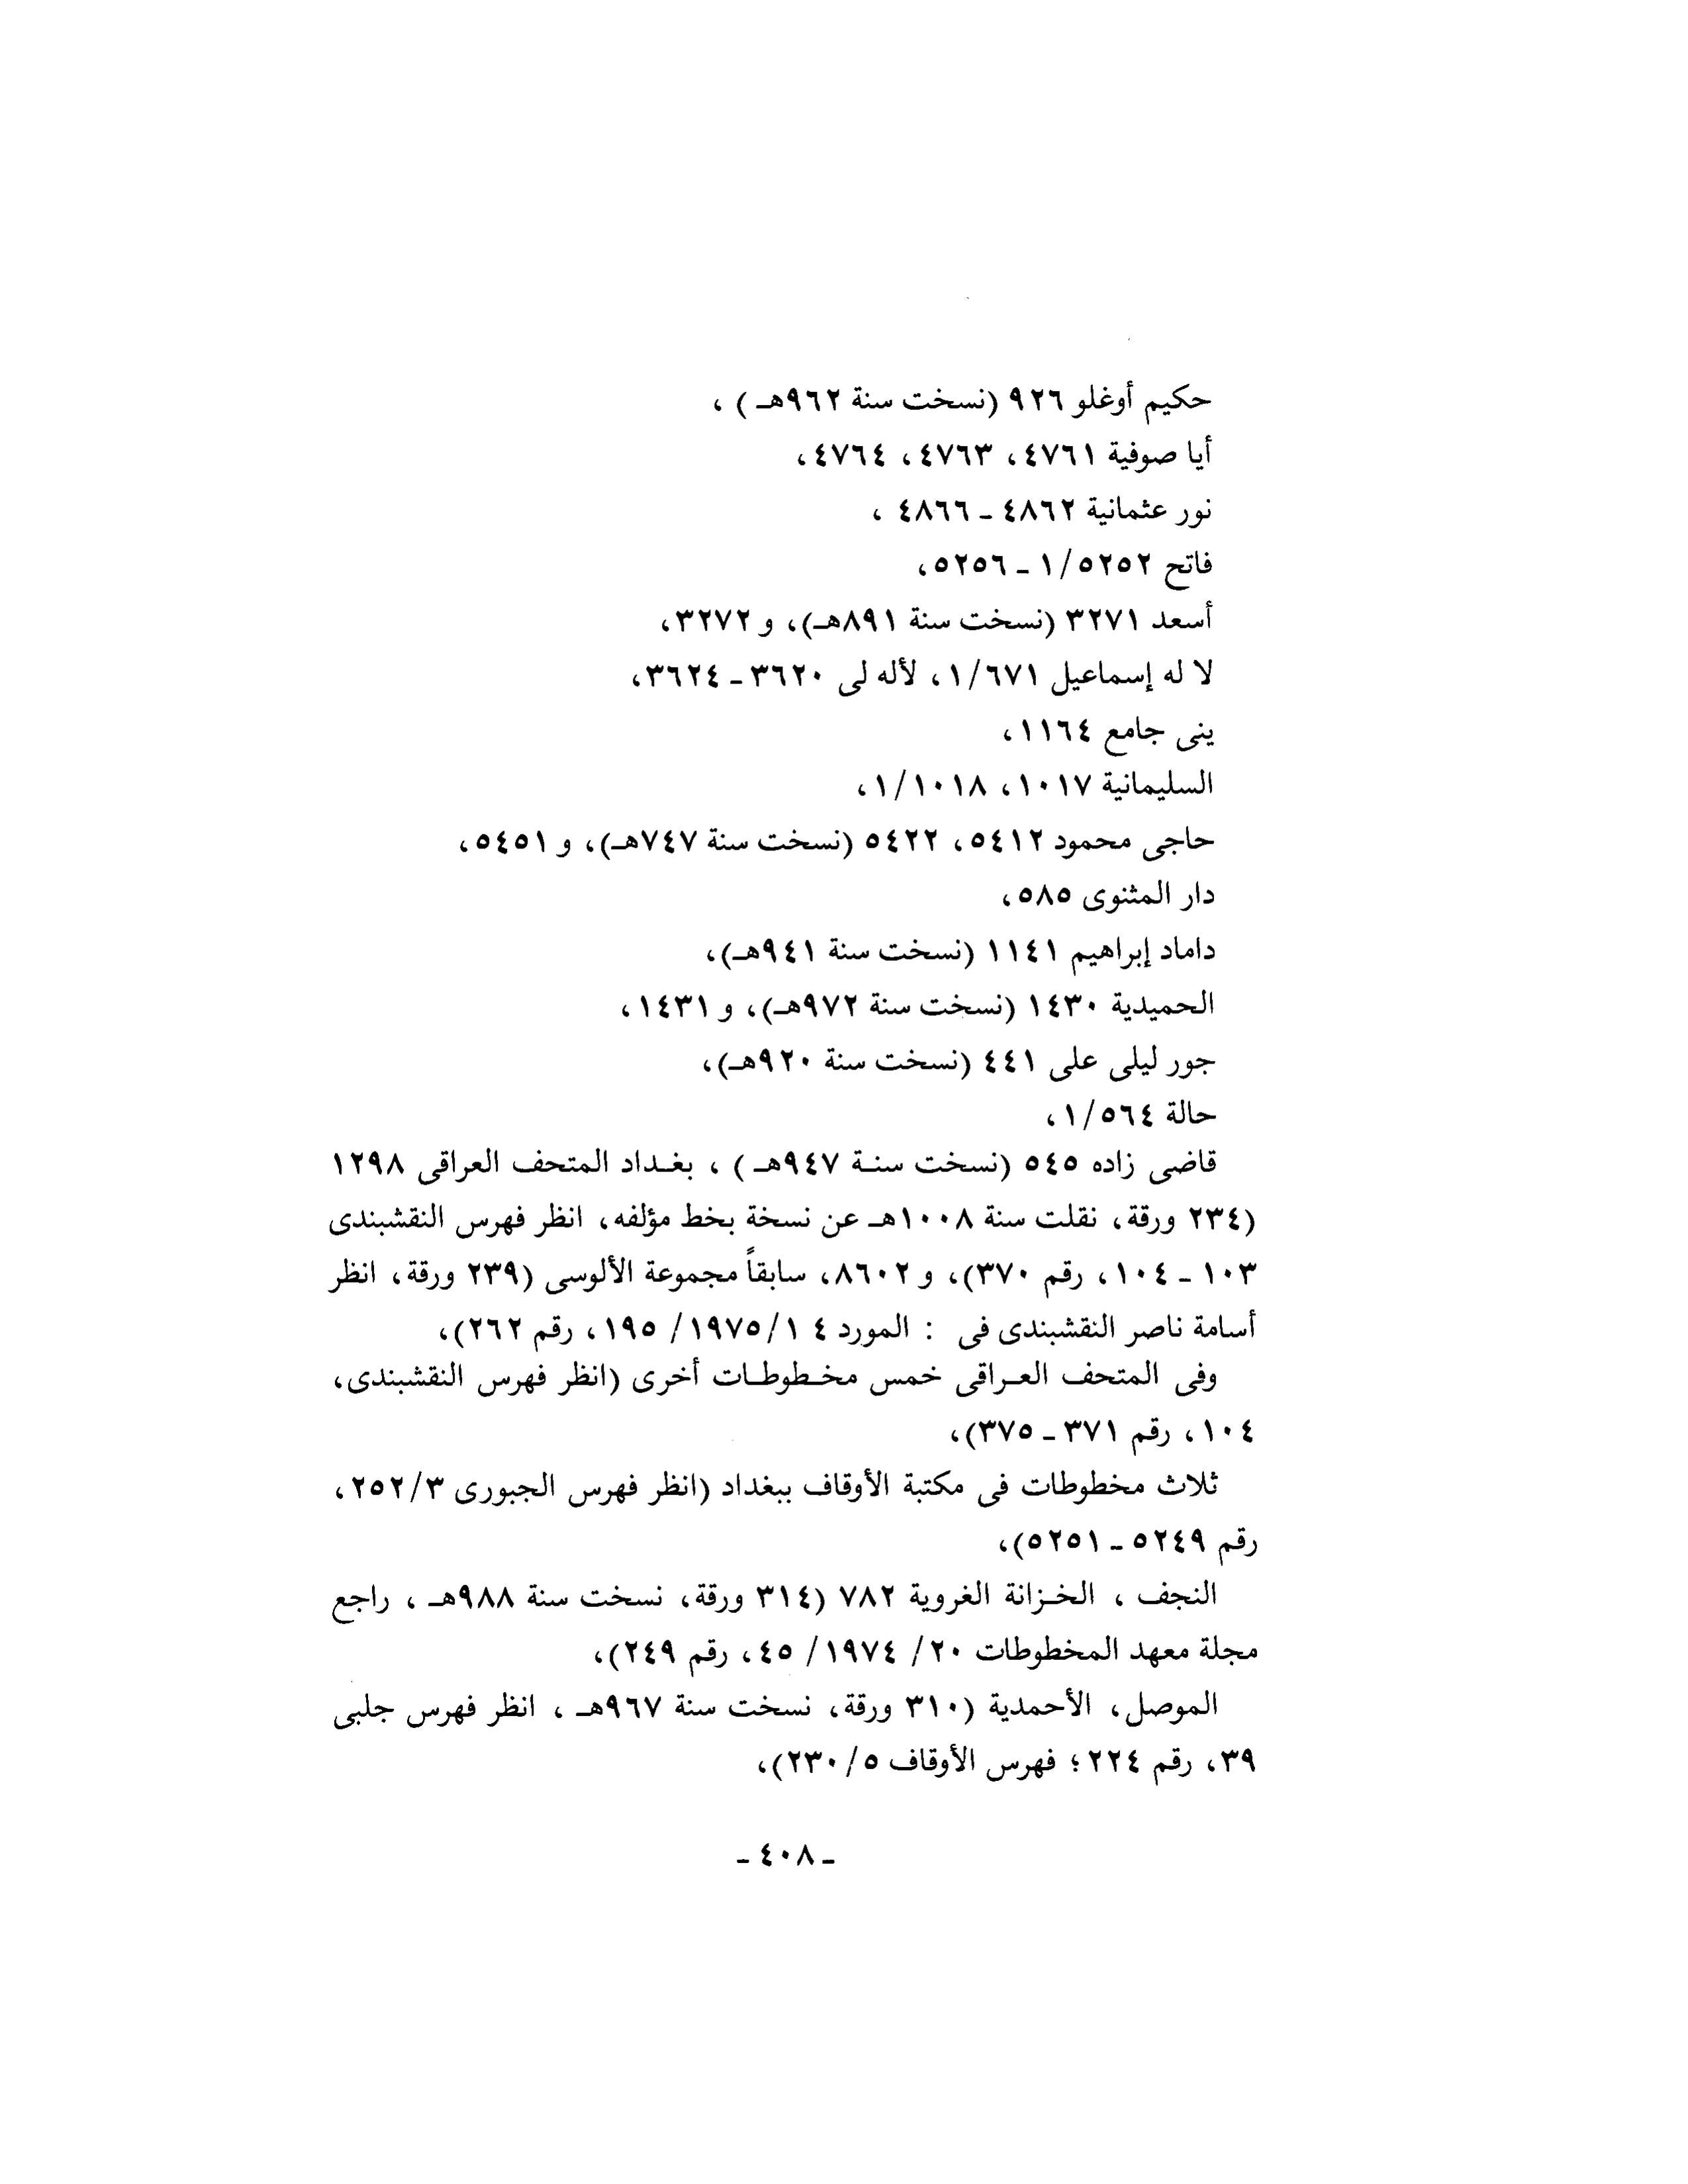 حكيم أوغلو ٩٢٦ (نسخت سنة ٩٦٢هـ ) ،
أيا صوفية ٤٧٦١، ٤٧٦٣، ٤٧٦٤،
نور عثمانية ٤٨٦٢ ـ ٤٨٦٦ ،
فاتح ١/٥٢٥٢ ـ ٥٢٥٦،
أسعد ٣٢٧١ (نسخت سنة ٨٩١هـ)، و ٣٢٧٢،
لا له إسماعيل ١/٦٧١، لأله لى ٣٦٢٠ ـ ٣٦٢٤،
ينى جامع ١١٦٤،
السليمانية ١٠١٧، ١/١٠١٨،
حاجى محمود ٥٤١٢، ٥٤٢٢ (نسخت سنة ٧٤٧هـ)، و ٥٤٥١،
دار المثنوى ٥٨٥،
داماد إبراهيم ١١٤١ (نسخت سنة ٩٤١هـ)،
الحميدية ١٤٣٠ (نسخت سنة ٩٧٢هـ)، و ١٤٣١،
جور ليلى على ٤٤١ (نسخت سنة ٩٢٠هـ)،
حالة ١/٥٦٤،
قاضى زاده ٥٤٥ (نسخت سنـة ٩٤٧هـ ) ، بغـداد المتحف العراقى ١٢٩٨
(٢٣٤ ورقة، نقلت سنة ١٠٠٨هـ عن نسخة بخط مؤلفه، انظر فهرس النقشبندى
١٠٣ ـ ١٠٤، رقم ٣٧٠)، و ٨٦٠٢، سابقاً مجموعة الألوسى (٢٣٩ ورقة، انظر
أسامة ناصر النقشبندى فى : المورد ٤ ١/١٩٧٥/ ١٩٥، رقم ٢٦٢)،
وفى المتحف العـراقى خمس مخـطوطـات أخرى (انظر فهرس النقشبندى،
١٠٤، رقم ٣٧١ ـ ٣٧٥)،
ثلاث مخطوطات فى مكتبة الأوقاف ببغداد (انظر فهرس الجبورى ٢٥٢/٣،
رقم ٥٢٤٩ ـ ٥٢٥١)،
النجف ، الخـزانة الغروية ٧٨٢ (٣١٤ ورقة، نسخت سنة ٩٨٨هـ ، راجع
مجلة معهد المخطوطات ٢٠/ ١٩٧٤/ ٤٥، رقم ٢٤٩)،
الموصل، الأحمدية (٣١٠ ورقة، نسخت سنة ٩٦٧هـ ، انظر فهرس جلبى
٣٩، رقم ٢٢٤؛ فهرس الأوقاف ٢٣٠/٥)،
ـ ٤٠٨ ـ